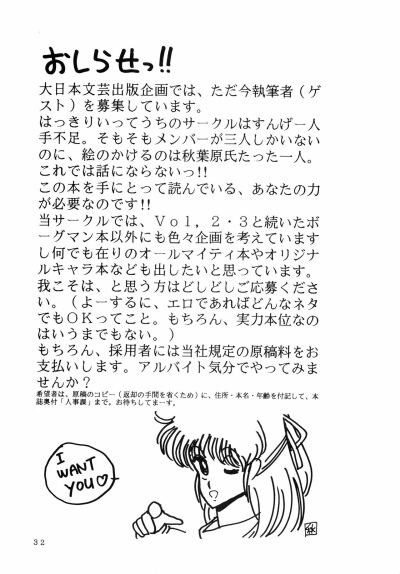 おしらせっ!!
大日本文芸出版企画では、ただ今執筆者（ゲ
スト）を募集しています。
はっきりいってうちのサークルはすんげー人
手不足。そもそもメンバーが三人しかいない
のに、絵のかけるのは秋葉原氏たった一人。
これでは話にならないっ!!
この本を手にとって読んでいる、あなたの力
が必要なのです!!
当サークルでは、Ｖｏｌ，２・３と続いたボ
ーグマン本以外にも色々企画を考えています
し何でも在りのオールマイティ本やオリジナ
ルキャラ本なども出したいと思っています。
我こそは、と思う方はどしどしご応募くださ
い。（よーするに、エロであればどんなネタ
でもＯＫってこと。もちろん、実力本位なの
はいうまでもない。）
もちろん、採用者には当社規定の原稿料をお
支払いします。アルバイト気分でやってみま
せんか？
希望者は、原稿のコピー（返却の手間を省くため）に、住所・本名・年齢を付記して、本
誌裏付「人事課」まで。お待ちしてまーす。
I
WANT
YOU♡
32